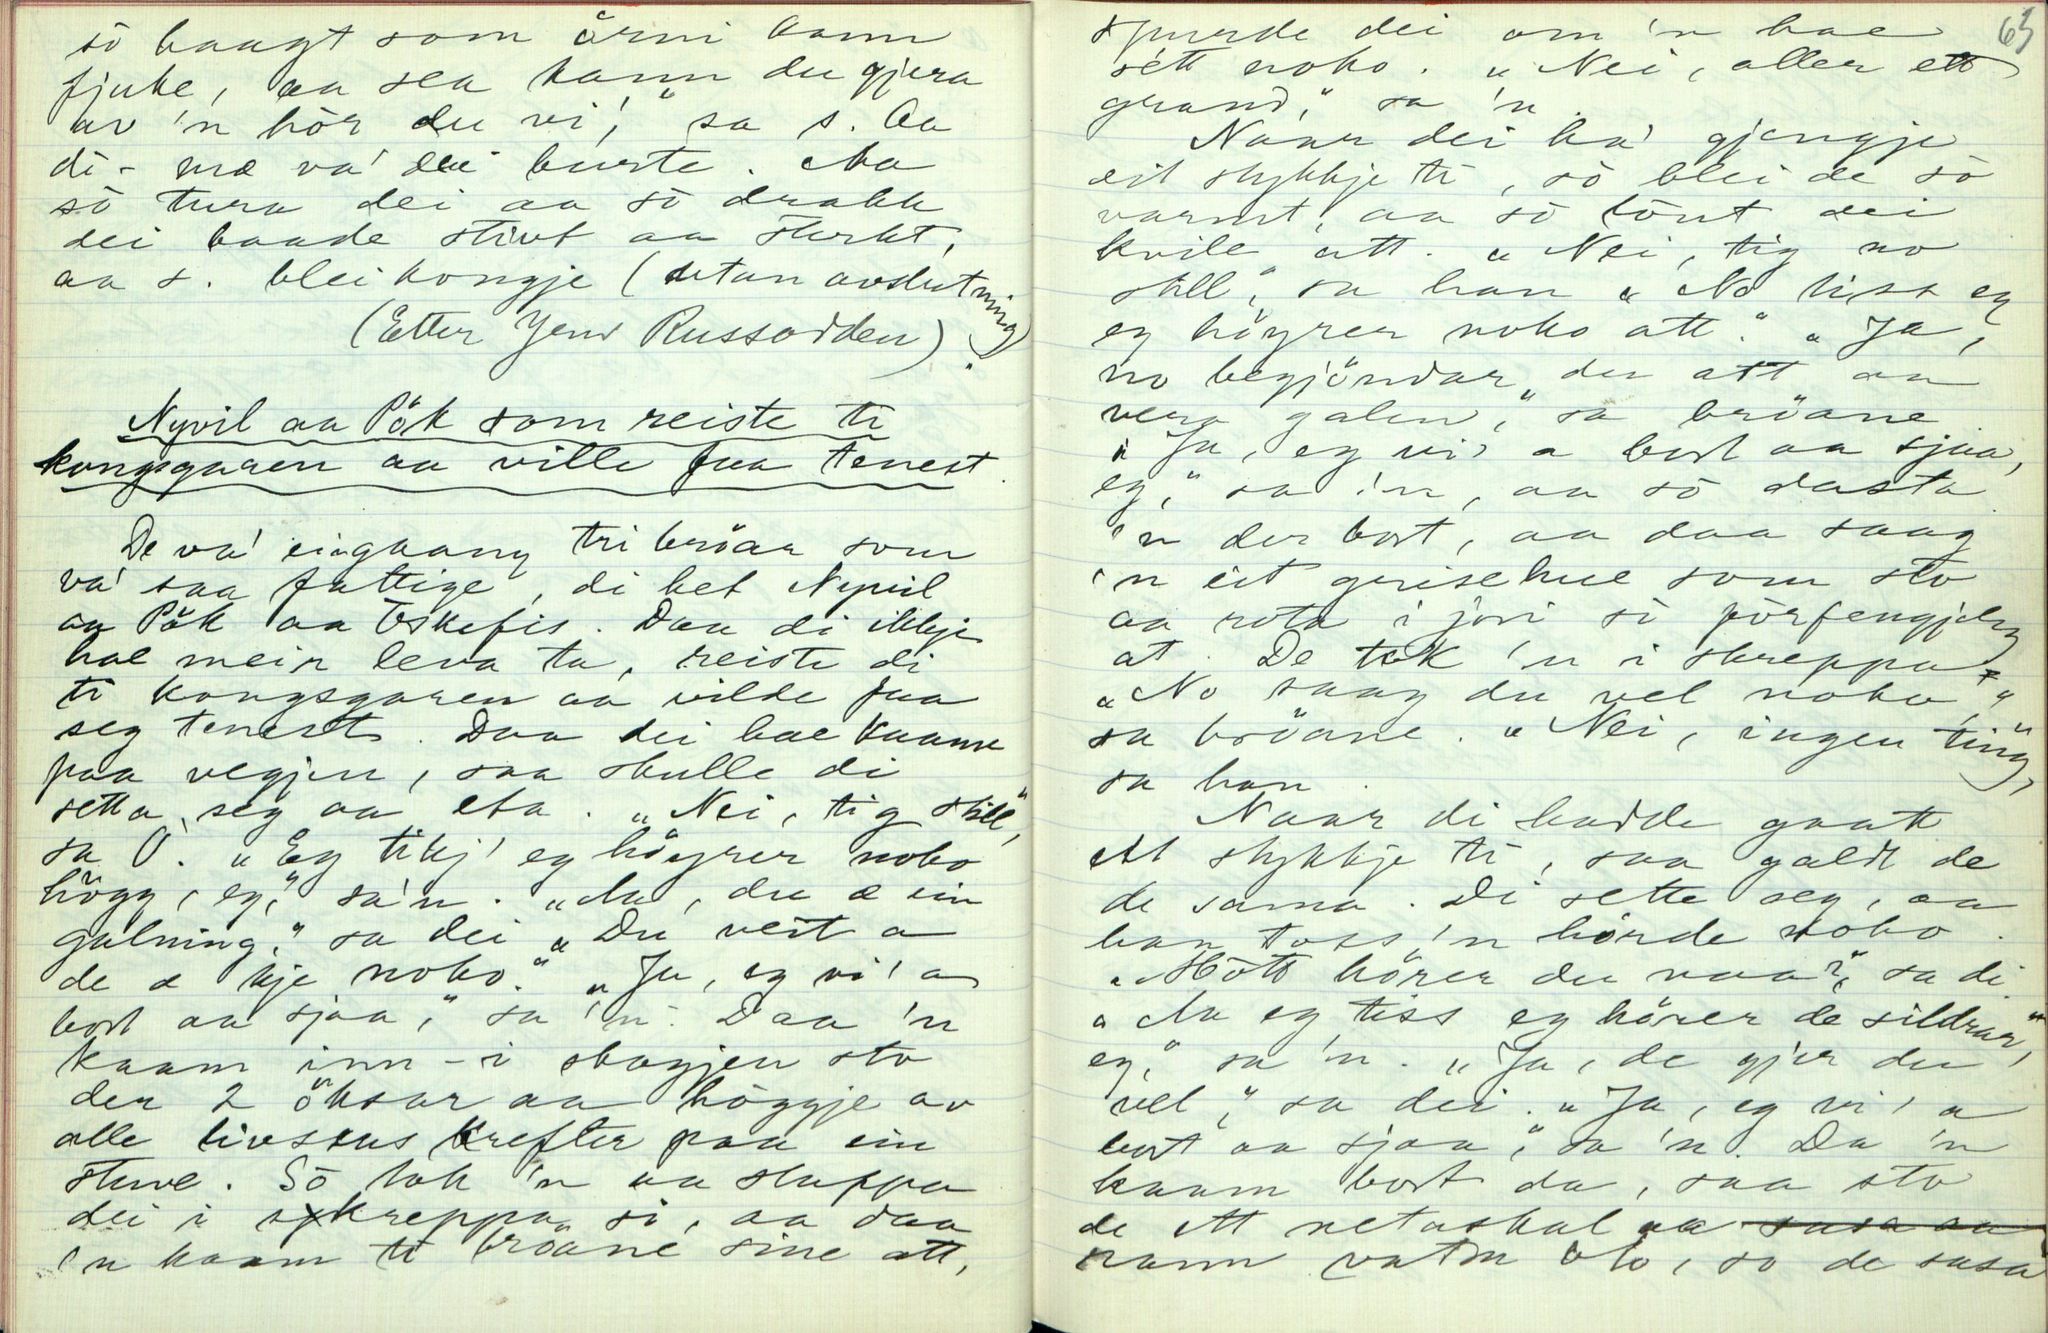 sö haagt som örni kann
fjuke, aa sea kann du gjera
av 'n hör du vi'," sa s. Aa
di - mæ va' dei burte. Aa
sö tura dei aa sö drakk
dei baade stivt aa sterkt,
aa s. blei kongje (utan avslutning)
(Etter Jens Russodden).
Nyvil aa Pök som reiste ti
kongsgaren aa ville faa tenest.
De va' eingaang tri bröar som
va' saa fattige, di het Nyvil
aa Pök aa Öskefis. Daa di ikkje
hae meir leva ta, reiste di
ti kongsgaren aa vilde faa
seg tenest. Daa dei hae kaame
paa vegjen, saa skulle di
setta seg aa eta. "Nei, tig still",
sa Ö. "Eg tikj' eg höyrer noko
högg, eg," sa 'n. "Aa, du æ ein
galning," sa dei "Du veit a
de æ kje noko." "Ja, eg vi' a
bort aa sjaa," sa 'n. Daa 'n
kaam inn - i skogjen sto
der 2 öksar aa höggje av
alle livsens krefter paa ein
stuve. Sö tok 'n aa stappa
dei i skreppa si, aa daa
'n kaam ti bröane sine att,
63
spurde dei om 'n hae
sett noko. "Nei, aller ett
grand," sa 'n.
Naar dei ha' gjengje
eit stykkje ti, sö blei de sö
varmt, aa sö tönt dei
kvile att. "Nei, tig no
still," sa han "No tiss eg
eg höyrer noko att." "Ja,
no begjöndar du att aa
vera galen," sa bröane
"Ja, eg vi' a bort aa sjaa,
eg," sa 'n, aa sö dasta
'n der bort, aa daa saag
'n eit grisehue som sto
aa rota i jöri sö pörfengjeleg
at. De tok 'n i skreppa.
"No saag du vel noko,"
sa bröane. "Nei, ingen ting",
sa han.
Naar di hadde gaatt
ett stykkje ti, saa galdt de
de sama. Di sette seg, aa
han toss 'n hörde noko.
"Hött hörer du naa?", sa di.
"Aa eg tiss eg hörer de sildrar",
eg," sa 'n. "Ja, de gjer du
vel," sa dei. "Ja, eg vi' a
bort aa sjaa," sa 'n. Da 'n
kaam bort da, saa sto
de ett netaskal aa sasa aa
rann vatn oto, so de sasa